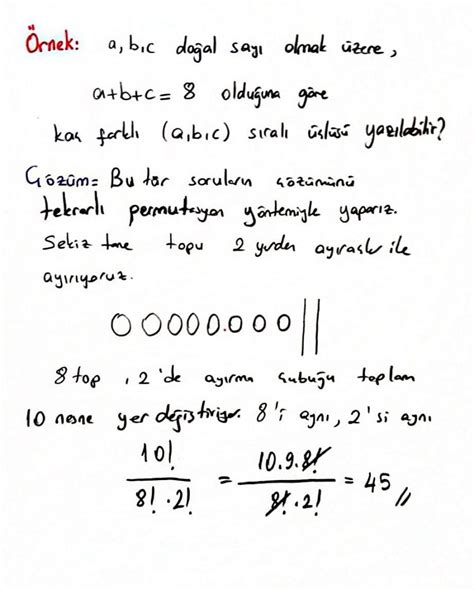 Örnek: a,b,c doğal sayı olmak üzere,
a+b+c= 8 olduğuna göre
kaç farklı (a,b,c) sıralı üçlüsü yazılabilir?
Çözüm= Bu tür soruların çözümünü
tekrarlı permutasyon yöntemiyle yaparız.
Sekiz tane topu 2 yerden ayıraçlar ile
ayırıyoruz.
00000.000||
8 top , 2'de ayırma çubuğu toplam
10 nesne yer değiştiriyor. 8'i aynı, 2'si aynı
10! / 8!.2! = 10.9.8! / 8!.2! = 45 //